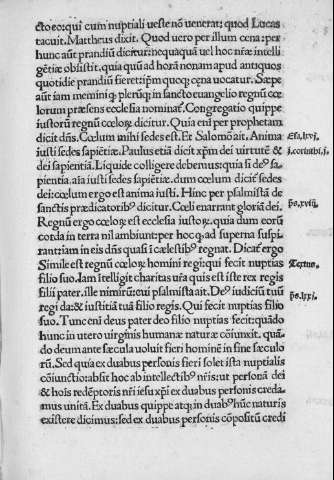 cto eo: qui cum nuptiali ueste nõ venerat: quod Lucas
tacuit. Mattheus dixit. Quod uero per illum cena: per
hunc aũt prandiũ dicitur: nequaquã uel hoc nr̃ae intelli-
gẽtiæ obsistit. quia quũ ad horã nonam apud antiquos
quotidie prandiũ fieret: ip̃m quoq; cena uocatur. Sæpe
aũt iam memini q̃ plerũq; in sancto euangelio regnũ cœ
lorum præsens ecclesia nominat̃. Congregatio quippe
iustorũ regnũ cœloꝝ dicitur. Quia eni per prophetam
dicit dñs. Cœlum mihi sedes est. Et Salomõ ait. Anima
iusti sedes sapiẽtiæ. Paulus etiã dicit xp̃m dei virtutẽ &
dei sapientiã. Liquide colligere debemus: quia si deꝰ sa-
pientia. aĩa iusti sedes sapiẽtiæ. dum cœlum dicit̃ sedes
dei: cœlum ergo est anima iusti. Hinc per psalmistã de
sanctis prædicatoribꝰ dicitur. Cœli enarrant gloriã dei.
Regnũ ergo cœloꝝ est ecclesia iustoꝝ. quia dum eorũ
corda in terra nil ambiunt: per hoc q̃ ad superna suspi-
rant: iam in eis dñs quasi ĩ cælestibꝰ regnat. Dicat̃ ergo
Simile est regnũ cœloꝝ homini regi: qui fecit nuptias
filio suo. Iam ĩtelligit charitas ur̃a quis est iste rex regis
filii pater. ille nimirũ: cui psalmista ait. Deꝰ iudiciũ tuũ
regi da: & iustitiã tuã filio regis. Qui fecit nuptias filio
suo. Tunc eni deus pater deo filio nuptias fecit: quãdo
hunc in utero virginis humanæ naturæ cõiunxit. quã-
do deum ante sæcula uoluit fieri hominẽ in fine sæculo
rũ. Sed quia ex duabus personis fieri solet ista nuptialis
cõiunctio: absit hoc ab intellectibꝰ nr̃is: ut personã dei
& hoĩs redẽptoris nr̃i iesu xp̃i ex duabus personis creda-
mus unitã. Ex duabus quippe atq; in duabꝰ hũc naturis
existere dicimus: sed ex duabus personis cõpositũ credi
Esa.lxvi.
j.corinthi.j.
p̃s.xviij.
Textus.
p̃s.lxxi.